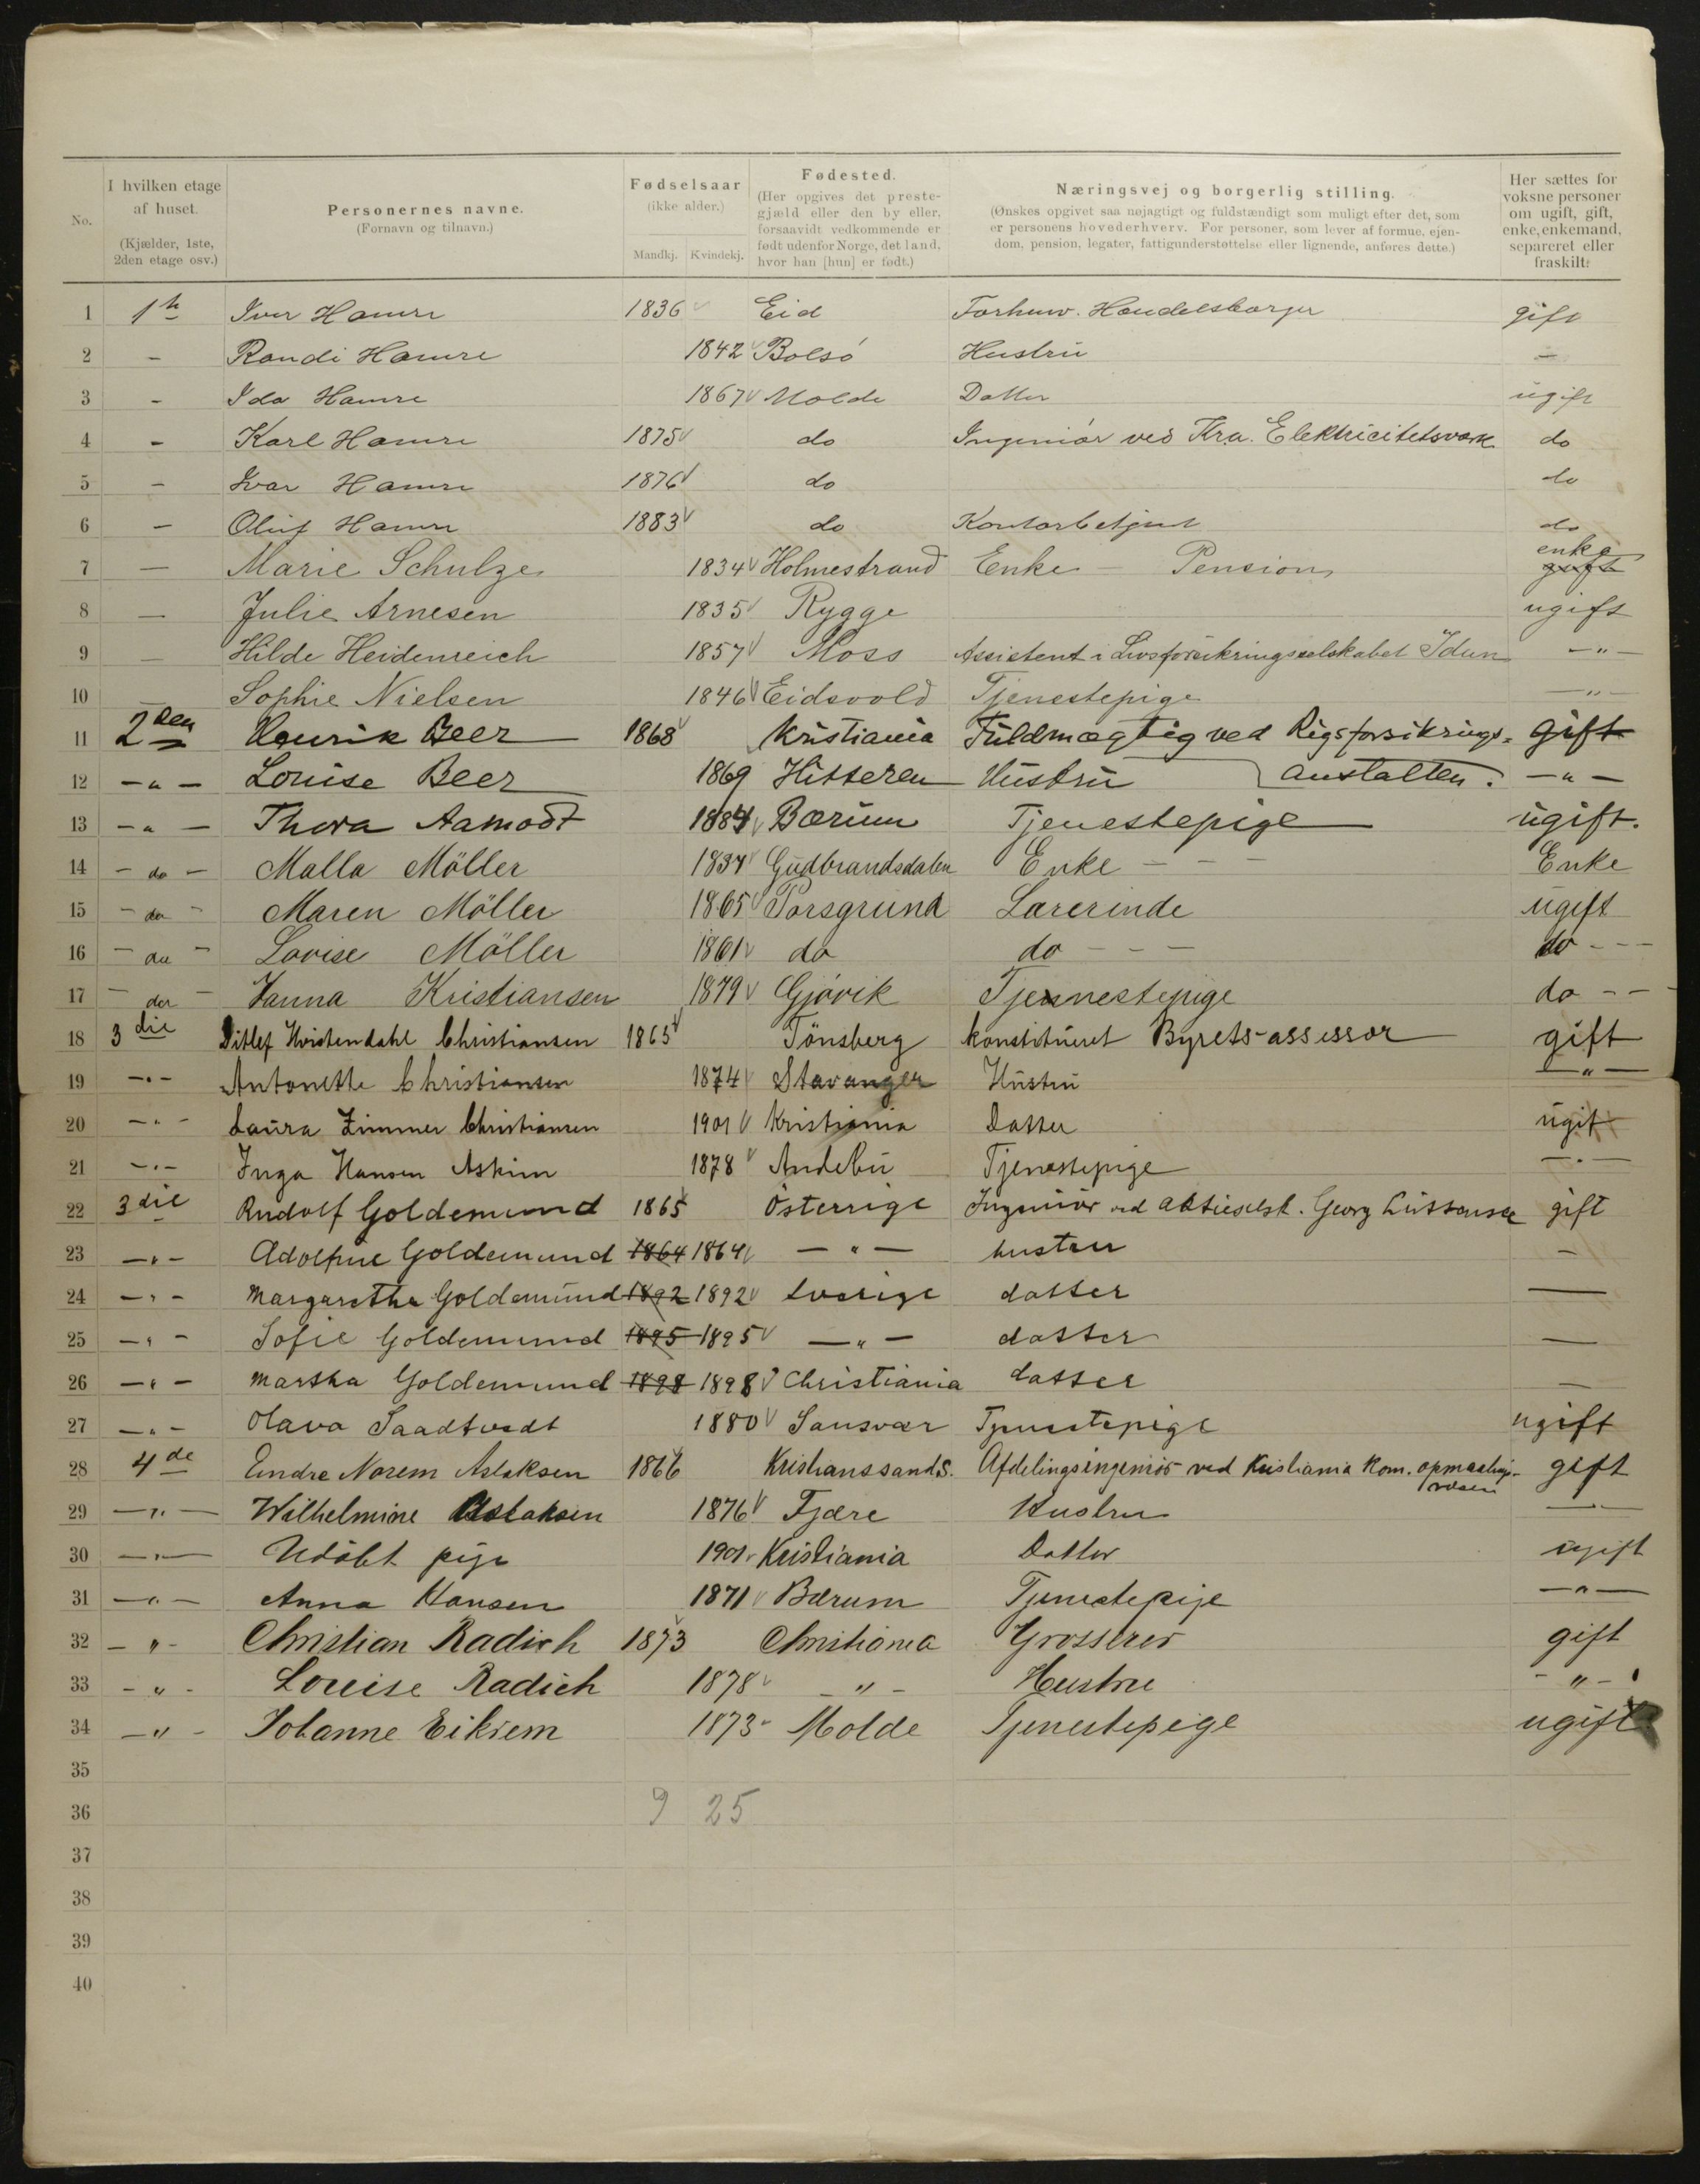 No. | I hvilken etage af huset. (Kjælder, 1ste, 2den etage osv.) | Personernes navne. (Fornavn og tilnavn.) | Fødselsaar (ikke alder.) Mandkj. Kvindekj. | Fødested. (Her opgives det prestegjæld eller den by eller, forsaavidt vedkommende er født udenfor Norge, det land, hvor han [hun] er født.) | Næringsvej og borgerlig stilling. (Ønskes opgivet saa nøjagtigt og fuldstændigt som muligt efter det, som er personens hovederhverv. For personer, som lever af formue, ejendom, pension, legater, fattigunderstøttelse eller lignende, anføres dette.) | Her sættes for voksne personer om ugift, gift, enke, enkemand, separeret eller fraskilt.
1 Iver Hamre 1836 Eid Forhenv. Handelsborger gift
2 - Randi Hamre 1842 Bolsö Hustru -
3 - Ida Hamre 1867 Molde Datter ugift
4 - Karl Hamre 1875 do Ingeniör ved Kra. Elektricitetsværk do
5 - Ivar Hamre 1876 do do
6 - Oluf Hamre 1883 do Kontorbetjent do
7 — Marie Schulze 1834 Holmestrand Enke - Pension enke gift
8 — Julie Arnesen 1835 Rygge ugift
9 — Hilde Heidenreich 1857 Moss Assistent i Livsforsikringsselskabet Idun -"-
10 — Sophie Nielsen 1846 Eidsvold Tjenestepige -"-
11 2den Henrik Beer 1868 Kristiania Fuldmægtig ved Rigsforsikrings- gift
12 -"- Louise Beer 1869 Hitteren Hustru anstalten. -"-
13 -"- Thora Aamodt 1884 Bærum Tjenestepige ugift.
14 - do - Malla Möller 1837 Gudbrandsdalen Enke - - - Enke
15 - do - Maren Möller 1865 Porsgrund Lærerinde ugift
16 - do - Lovise Möller 1861 do do - - - do - - -
17 - do - Hanna Kristiansen 1879 Gjövik Tjennestepige do - - -
18 3die Ditlef Hvistendahl Christiansen 1865 Tönsberg konstitueret Byrets-assessor gift
19 -"- Antonette Christiansen 1874 Stavanger Hustru -"-
20 -"- Laura Zimmer Christiansen 1901 Kristiania Datter ugit
21 -"- Inga Hansen Askim 1878 Andebu Tjenestepige -"-
22 3die Rudolf Goldemund 1865 Österrige Ingeniör ved aktieselsk. Georg gift
23 -"- Adolfine Goldemund 1864 1864 -"- hustru -
24 -"- Margarethe Goldemund 1892 1892 Sverige datter —
25 -"- Sofie Goldemund 1895 1895 -"- datter —
26 -"- Martha Goldemund 1898 1898 Christiania datter —
27 -"- Olava Saadtvedt 1880 Sansvær Tjenestepige ugift
28 4de Endre Norem Aslaksen 1866 Kristianssand S. Afdelingsingeniör ved Kristiania Kom. opmaalings- gift
væsen
29 -"- Wilhelmine Aslaksen 1876 Fjære Hustru -"-
30 -"- Udöbt pige 1901 Kristiania Datter ugift
31 -"- Anna Hansen 1871 Bærum Tjenestepige -"-
32 -"- Christian Radich 1873 Christiania Grosserer gift
33 -"- Louise Radich 1878 -"- Hustru -"-
34 -"- Johanne Eikrem 1873 Molde Tjenestepige ugift
35
36 9 25
37
38
39
40